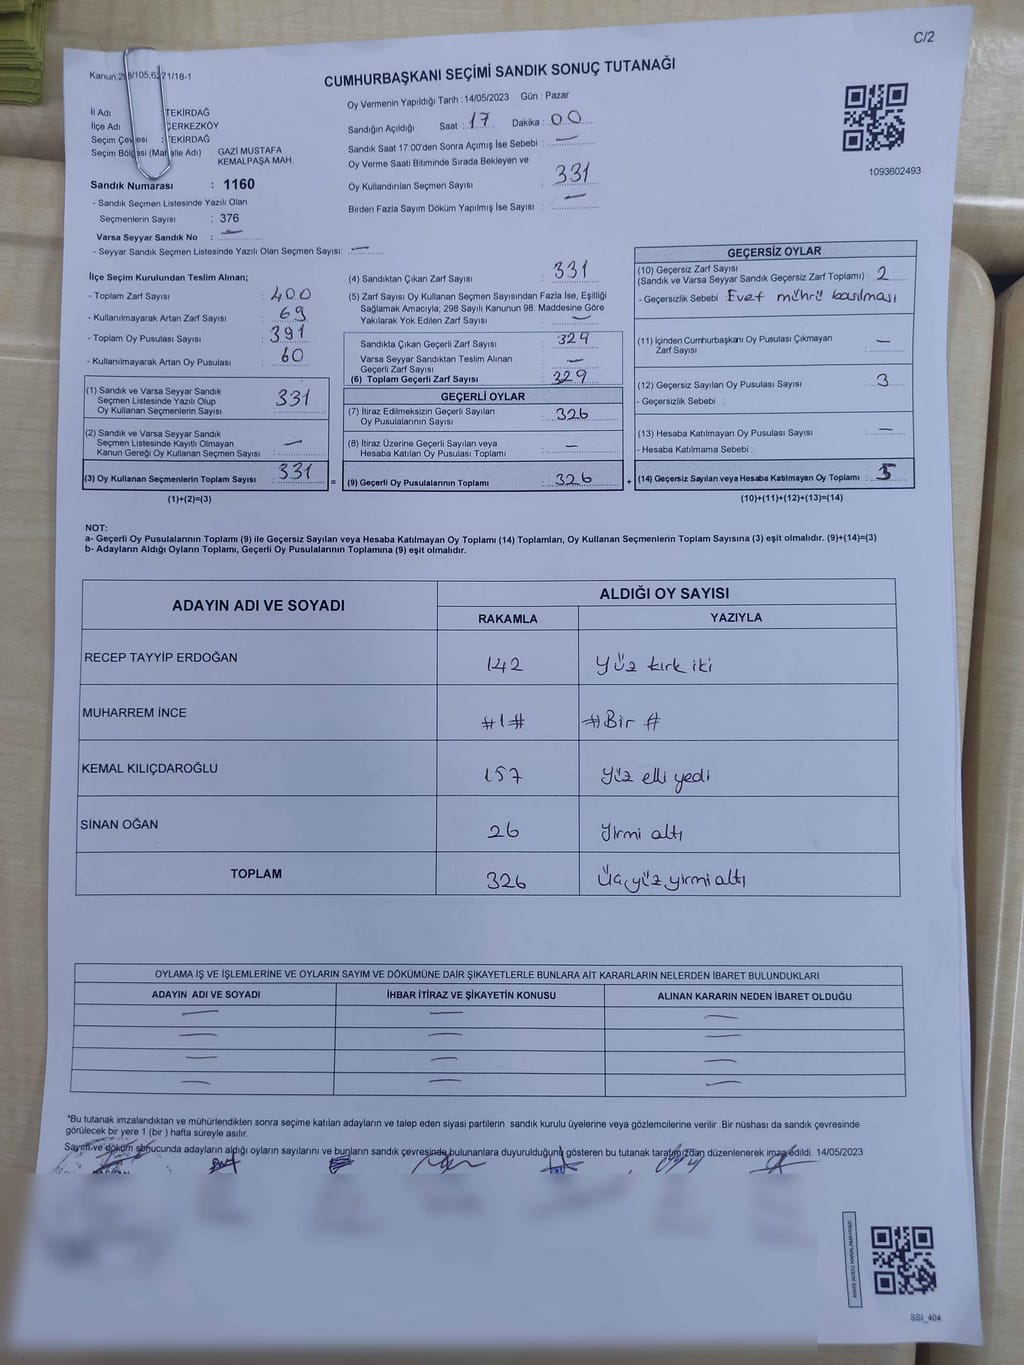 C/2
Kanun,298/105.6271/18-1
CUMHURBAŞKANI SEÇİMİ SANDIK SONUÇ TUTANAĞI
İl Adı : TEKİRDAĞ
İlçe Adı : ÇERKEZKÖY
Seçim Çevresi : TEKİRDAĞ
Seçim Bölgesi (Mahalle Adı) : GAZİ MUSTAFA
KEMALPAŞA MAH.
Sandık Numarası : 1160
- Sandık Seçmen Listesinde Yazılı Olan
Seçmenlerin Sayısı : 376
Varsa Seyyar Sandık No : —
- Seyyar Sandık Seçmen Listesinde Yazılı Olan Seçmen Sayısı: —
Oy Vermenin Yapıldığı Tarih : 14/05/2023 Gün : Pazar
Sandığın Açıldığı Saat : 17 Dakika : 00
Sandık Saat 17.00'den Sonra Açımış İse Sebebi : —
Oy Verme Saati Bitiminde Sırada Bekleyen ve
Oy Kullandırılan Seçmen Sayısı : 331
Birden Fazla Sayım Döküm Yapılmış İse Sayısı : —
1093602493
İlçe Seçim Kurulundan Teslim Alınan;
- Toplam Zarf Sayısı : 400
- Kullanılmayarak Artan Zarf Sayısı : 69
- Toplam Oy Pusulası Sayısı : 391
- Kullanılmayarak Artan Oy Pusulası : 60
(1) Sandık ve Varsa Seyyar Sandık
Seçmen Listesinde Yazılı Olup
Oy Kullanan Seçmenlerin Sayısı : 331
(2) Sandık ve Varsa Seyyar Sandık
Seçmen Listesinde Kayıtlı Olmayan
Kanun Gereği Oy Kullanan Seçmen Sayısı : —
(3) Oy Kullanan Seçmenlerin Toplam Sayısı : 331 =
(1)+(2)=(3)
(4) Sandıktan Çıkan Zarf Sayısı : 331
(5) Zarf Sayısı Oy Kullanan Seçmen Sayısından Fazla İse, Eşitliği
Sağlamak Amacıyla, 298 Sayılı Kanunun 98. Maddesine Göre
Yakılarak Yok Edilen Zarf Sayısı : —
Sandıkta Çıkan Geçerli Zarf Sayısı : 329
Varsa Seyyar Sandıktan Teslim Alınan
Geçerli Zarf Sayısı : —
(6) Toplam Geçerli Zarf Sayısı : 329
GEÇERLİ OYLAR
(7) İtiraz Edilmeksizin Geçerli Sayılan
Oy Pusulalarının Sayısı : 326
(8) İtiraz Üzerine Geçerli Sayılan veya
Hesaba Katılan Oy Pusulası Toplamı : —
(9) Geçerli Oy Pusulalarının Toplamı : 326 +
GEÇERSİZ OYLAR
(10) Geçersiz Zarf Sayısı
(Sandık ve Varsa Seyyar Sandık Geçersiz Zarf Toplamı) : 2
- Geçersizlik Sebebi : Evet mührü basılması
(11) İçinden Cumhurbaşkanı Oy Pusulası Çıkmayan
Zarf Sayısı : —
(12) Geçersiz Sayılan Oy Pusulası Sayısı : 3
- Geçersizlik Sebebi :
(13) Hesaba Katılmayan Oy Pusulası Sayısı : —
- Hesaba Katılmama Sebebi :
(14) Geçersiz Sayılan veya Hesaba Katılmayan Oy Toplamı : 5
(10)+(11)+(12)+(13)=(14)
NOT:
a- Geçerli Oy Pusulalarının Toplamı (9) ile Geçersiz Sayılan veya Hesaba Katılmayan Oy Toplamı (14) Toplamları, Oy Kullanan Seçmenlerin Toplam Sayısına (3) eşit olmalıdır. (9)+(14)=(3)
b- Adayların Aldığı Oyların Toplamı, Geçerli Oy Pusulalarının Toplamına (9) eşit olmalıdır.
ADAYIN ADI VE SOYADI ALDIĞI OY SAYISI
RAKAMLA YAZIYLA
RECEP TAYYİP ERDOĞAN 142 Yüz kırk iki
MUHARREM İNCE #1# #Bir#
KEMAL KILIÇDAROĞLU 157 Yüz elli yedi
SİNAN OĞAN 26 Yirmi altı
TOPLAM 326 Üçyüz yirmi altı
OYLAMA İŞ VE İŞLEMLERİNE VE OYLARIN SAYIM VE DÖKÜMÜNE DAİR ŞİKAYETLERLE BUNLARA AİT KARARLARIN NELERDEN İBARET BULUNDUKLARI
ADAYIN ADI VE SOYADI İHBAR İTİRAZ VE ŞİKAYETİN KONUSU ALINAN KARARIN NEDEN İBARET OLDUĞU
— — —
— — —
— — —
— — —
*Bu tutanak imzalandıktan ve mühürlendikten sonra seçime katılan adayların ve talep eden siyasi partilerin sandık kurulu üyelerine veya gözlemcilerine verilir .Bir nüshası da sandık çevresinde
görülecek bir yere 1 (bir ) hafta süreyle asılır.
Sayım ve döküm sonucunda adayların aldığı oyların sayılarını ve bunların sandık çevresinde bulunanlara duyurulduğunu gösteren bu tutanak tarafımızdan düzenlenerek imza edildi. 14/05/2023
KARE KODU KARALAMAYINIZ!
SSI_404